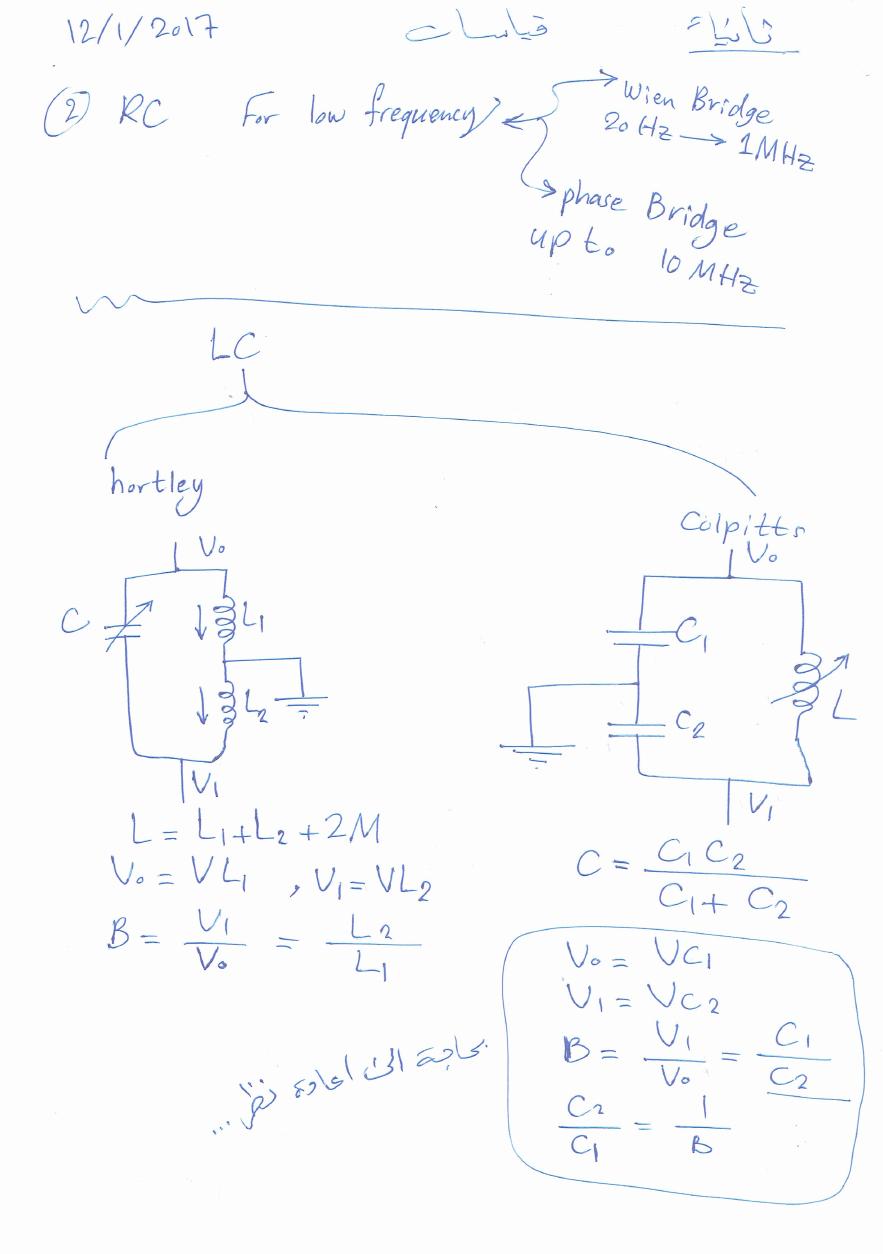 12/1/2017 قياسات ثلاثاء
② RC For low frequency
Wien Bridge
20 Hz → 1 MHz
phase Bridge
up to 10 MHz
LC
hortley
Colpitts
V₀
C
L₁
L₂
V₁
L = L₁ + L₂ + 2M
V₀ = VL₁ , V₁ = VL₂
B = V₁/V₀ = L₂/L₁
V₀
C₁
C₂
L
V₁
C = C₁ C₂ / C₁ + C₂
V₀ = VC₁
V₁ = VC₂
B = V₁/V₀ = C₁/C₂
C₂/C₁ = 1/B
بحاجة الى اعادة نظر ...